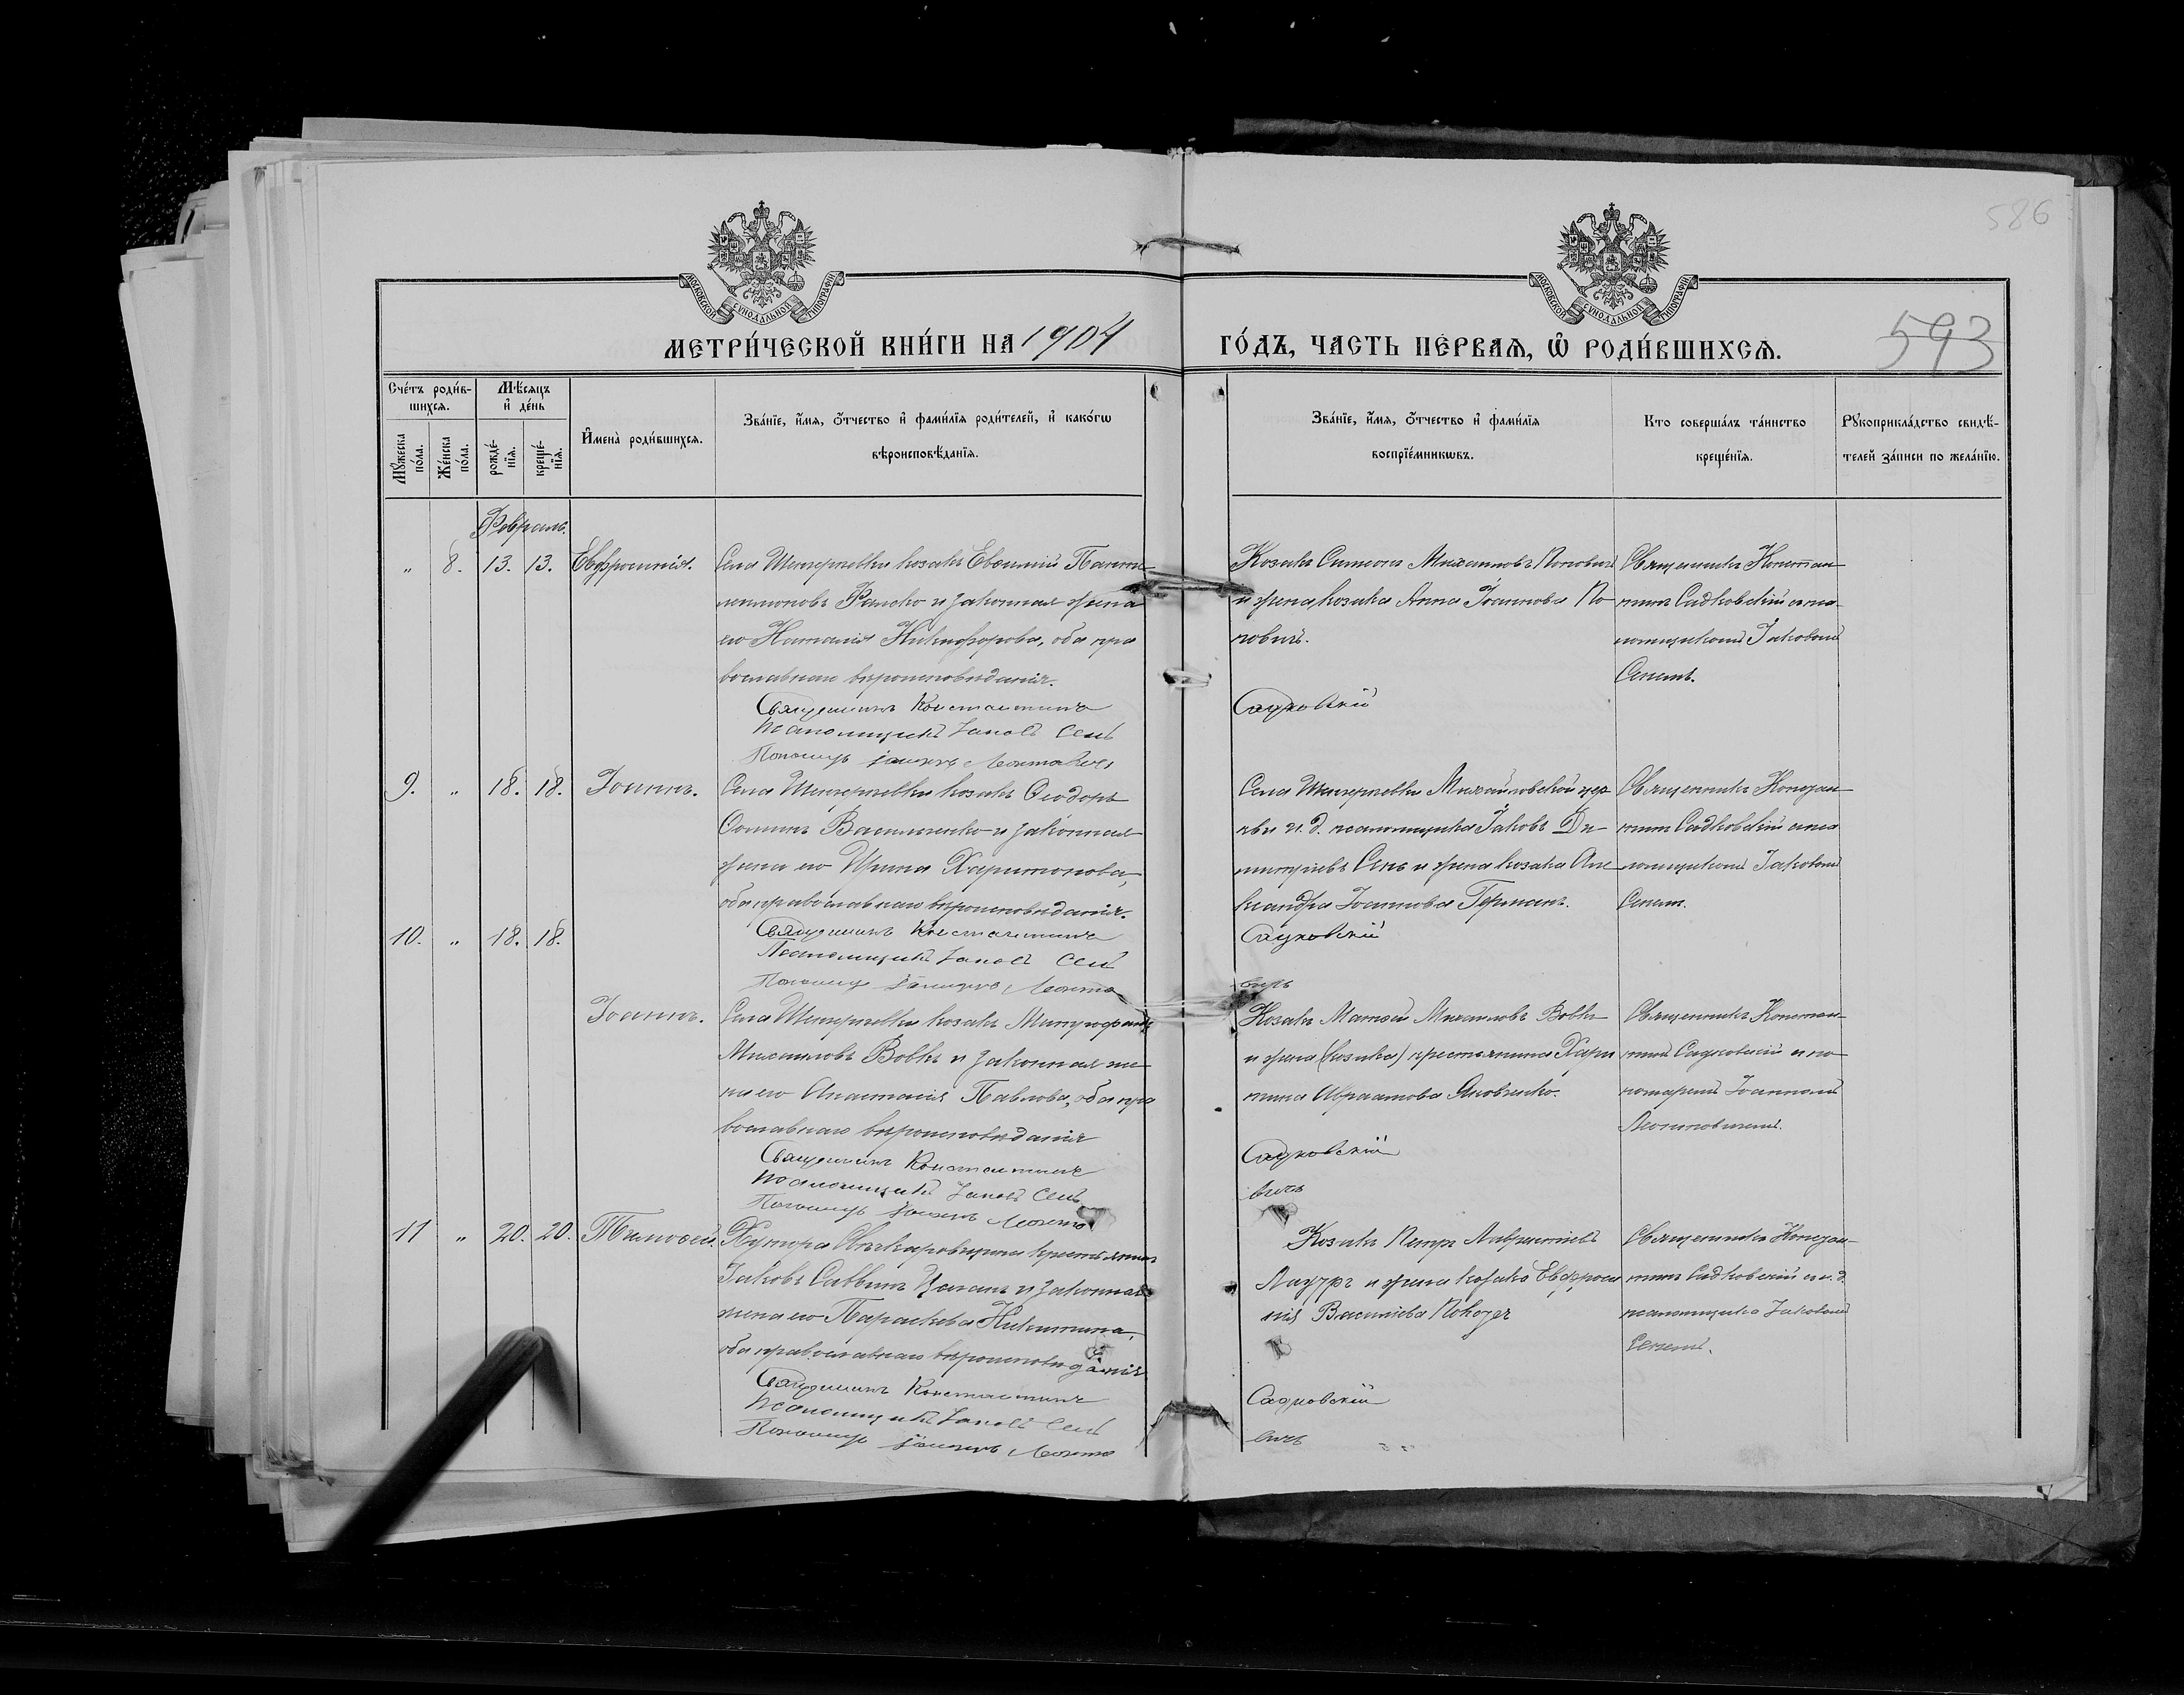 586
593
МОСКОВСКОЙ СѴНОДАЛЬНОЙ ТИПОГРАФІИ
МОСКОВСКОЙ СѴНОДАЛЬНОЙ ТИПОГРАФІИ
МЕТРИ́ЧЕСКОЙ КНИ́ГИ НА 1904 ГО́ДЪ, ЧА́СТЬ ПЕ́РВАѦ, Ѡ҆ РОДИ́ВШИХСѦ.
Сче́тъ роди́в-
шихсѧ.
Мꙋ́жеска по́ла.
Же́нска по́ла.
Мѣ́сѧцъ
и҆ де́нь
рожде́-
нїѧ.
креще́-
нїѧ.
И҆мена̀ роди́вшихсѧ.
Зва́нїе, и҆́мѧ, ѻ҆́тчество и҆ фами́лїѧ роди́телей, и҆ како́гѡ
вѣроисповѣ́данїѧ.
Зва́нїе, и҆́мѧ, ѻ҆́тчество и҆ фами́лїѧ
воспрїе́мникѡвъ.
Кто соверша́лъ та́инство
креще́нїѧ.
Рꙋкоприкла́дство свидѣ́-
телей за́писи по жела́нїю.
Февраль.
" 8. 13. 13. Евфросинія.
Села Шенгерѣевки козакъ Евѳимій Панте-
леимоновъ Фалько и законная жена
его Наталія Никифорова, оба пра
вославнаго вѣроисповѣданія.
Священникъ Константинъ
Псаломщикъ Іаковъ Сень
Пономарь Іоаннъ
Козакъ Симеонъ Михаиловъ Поповичъ
и жена козака Анна Іоаннова По
повичъ.
Садковскій
Священникъ Констан
тинъ Садковскій съ пса
ломщикомъ Іаковомъ
Сенемъ.
9. " 18. 18. Іоаннъ.
Села Шенгерѣевки козакъ Ѳеодоръ
Ѳоминъ Василенко и законная
жена его Ирина Харитонова,
оба православнаго вѣроисповѣданія.
Священникъ Константинъ
Псаломщикъ Іаковъ Сень
Пономарь Іоаннъ
Села Шенгерѣевки Михайловской цер
кви и. д. псаломщика Іаковъ Ди
митріевъ Сень и жена козака Але
ксандра Іоаннова Германъ.
Садковскій
вичъ
Священникъ Констан
тинъ Садковскій съ пса
ломщикомъ Іаковомъ
Сенемъ.
10. " 18. 18.
Іоаннъ.
Села Шенгерѣевки козакъ Митрофанъ
Михаиловъ Вовкъ и законная же
на его Анастасія Павлова, оба пра
вославнаго вѣроисповѣданія
Священникъ Константинъ
Псаломщикъ Іаковъ Сень
Пономарь Іоаннъ
Козакъ Матѳей Михаиловъ Вовкъ
и жена (козака) крестьянина Хари
тина Авраамова Яковенко.
Садковскій
вичъ
Священникъ Констан
тинъ Садковскій съ по
номаремъ Іоанномъ
11 " 20. 20. Тимоѳей.
Хутора крестьянинъ
Іаковъ Саввинъ и законная
жена его Параскева Никитина,
оба православнаго вѣроисповѣданія
Священникъ Константинъ
Псаломщикъ Іаковъ Сень
Пономарь Іоаннъ
Козакъ Петръ Лаврентіевъ
и жена козака Евфроси
нія Василіева
Садковскій
вичъ
Священникъ Констан
тинъ Садковскій съ и. д.
псаломщика Іаковомъ
Сенемъ.